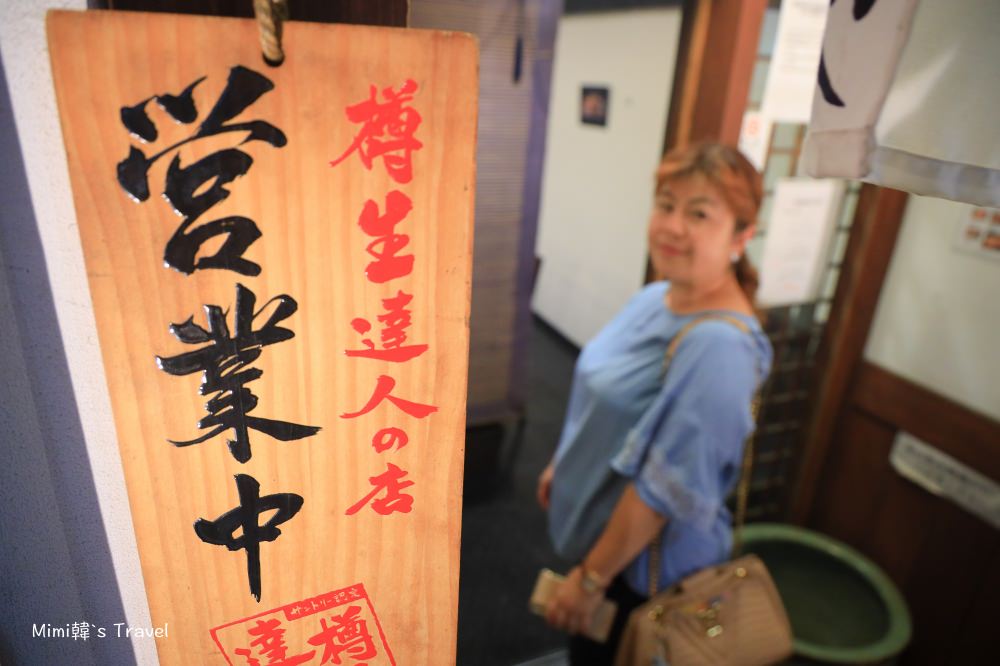 樽生達人の店
営業中
サントリー認定
樽
達
Mimi韓`s Travel